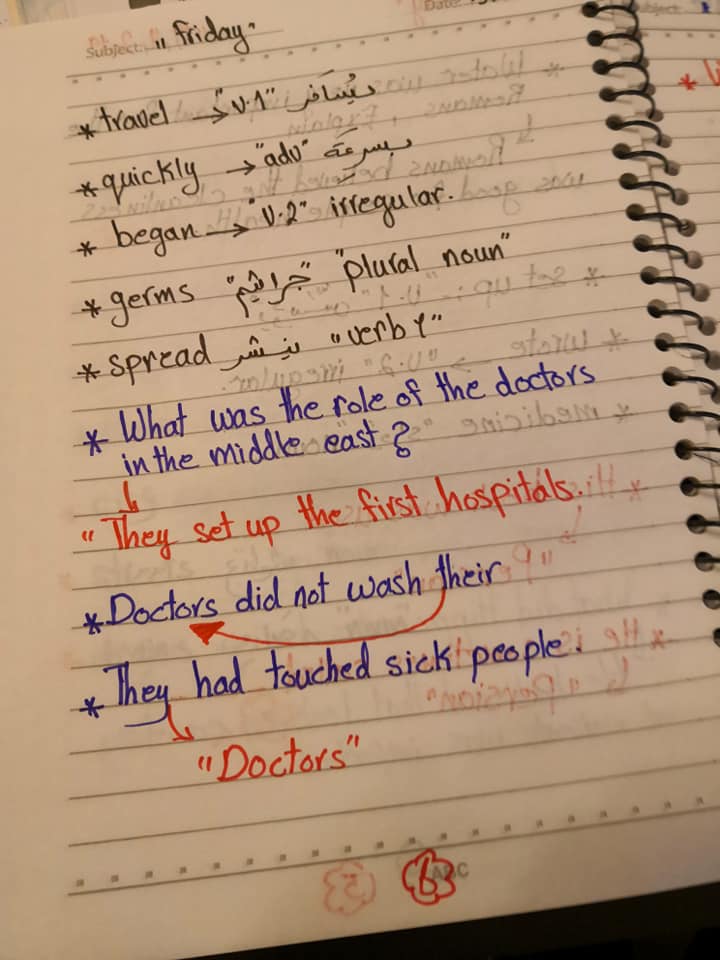 Subject: "friday"
Date
* travel → "v.1" يُسَافر
* quickly → "adv" بسرعَة
* began → "v.2" irregular.
* germs "جراثيم" "plural noun"
* spread ينشر "verb 1"
* What was the role of the doctors
in the middle east?
"They set up the first hospitals.
* Doctors did not wash their
* They had touched sick people.
"Doctors"
6